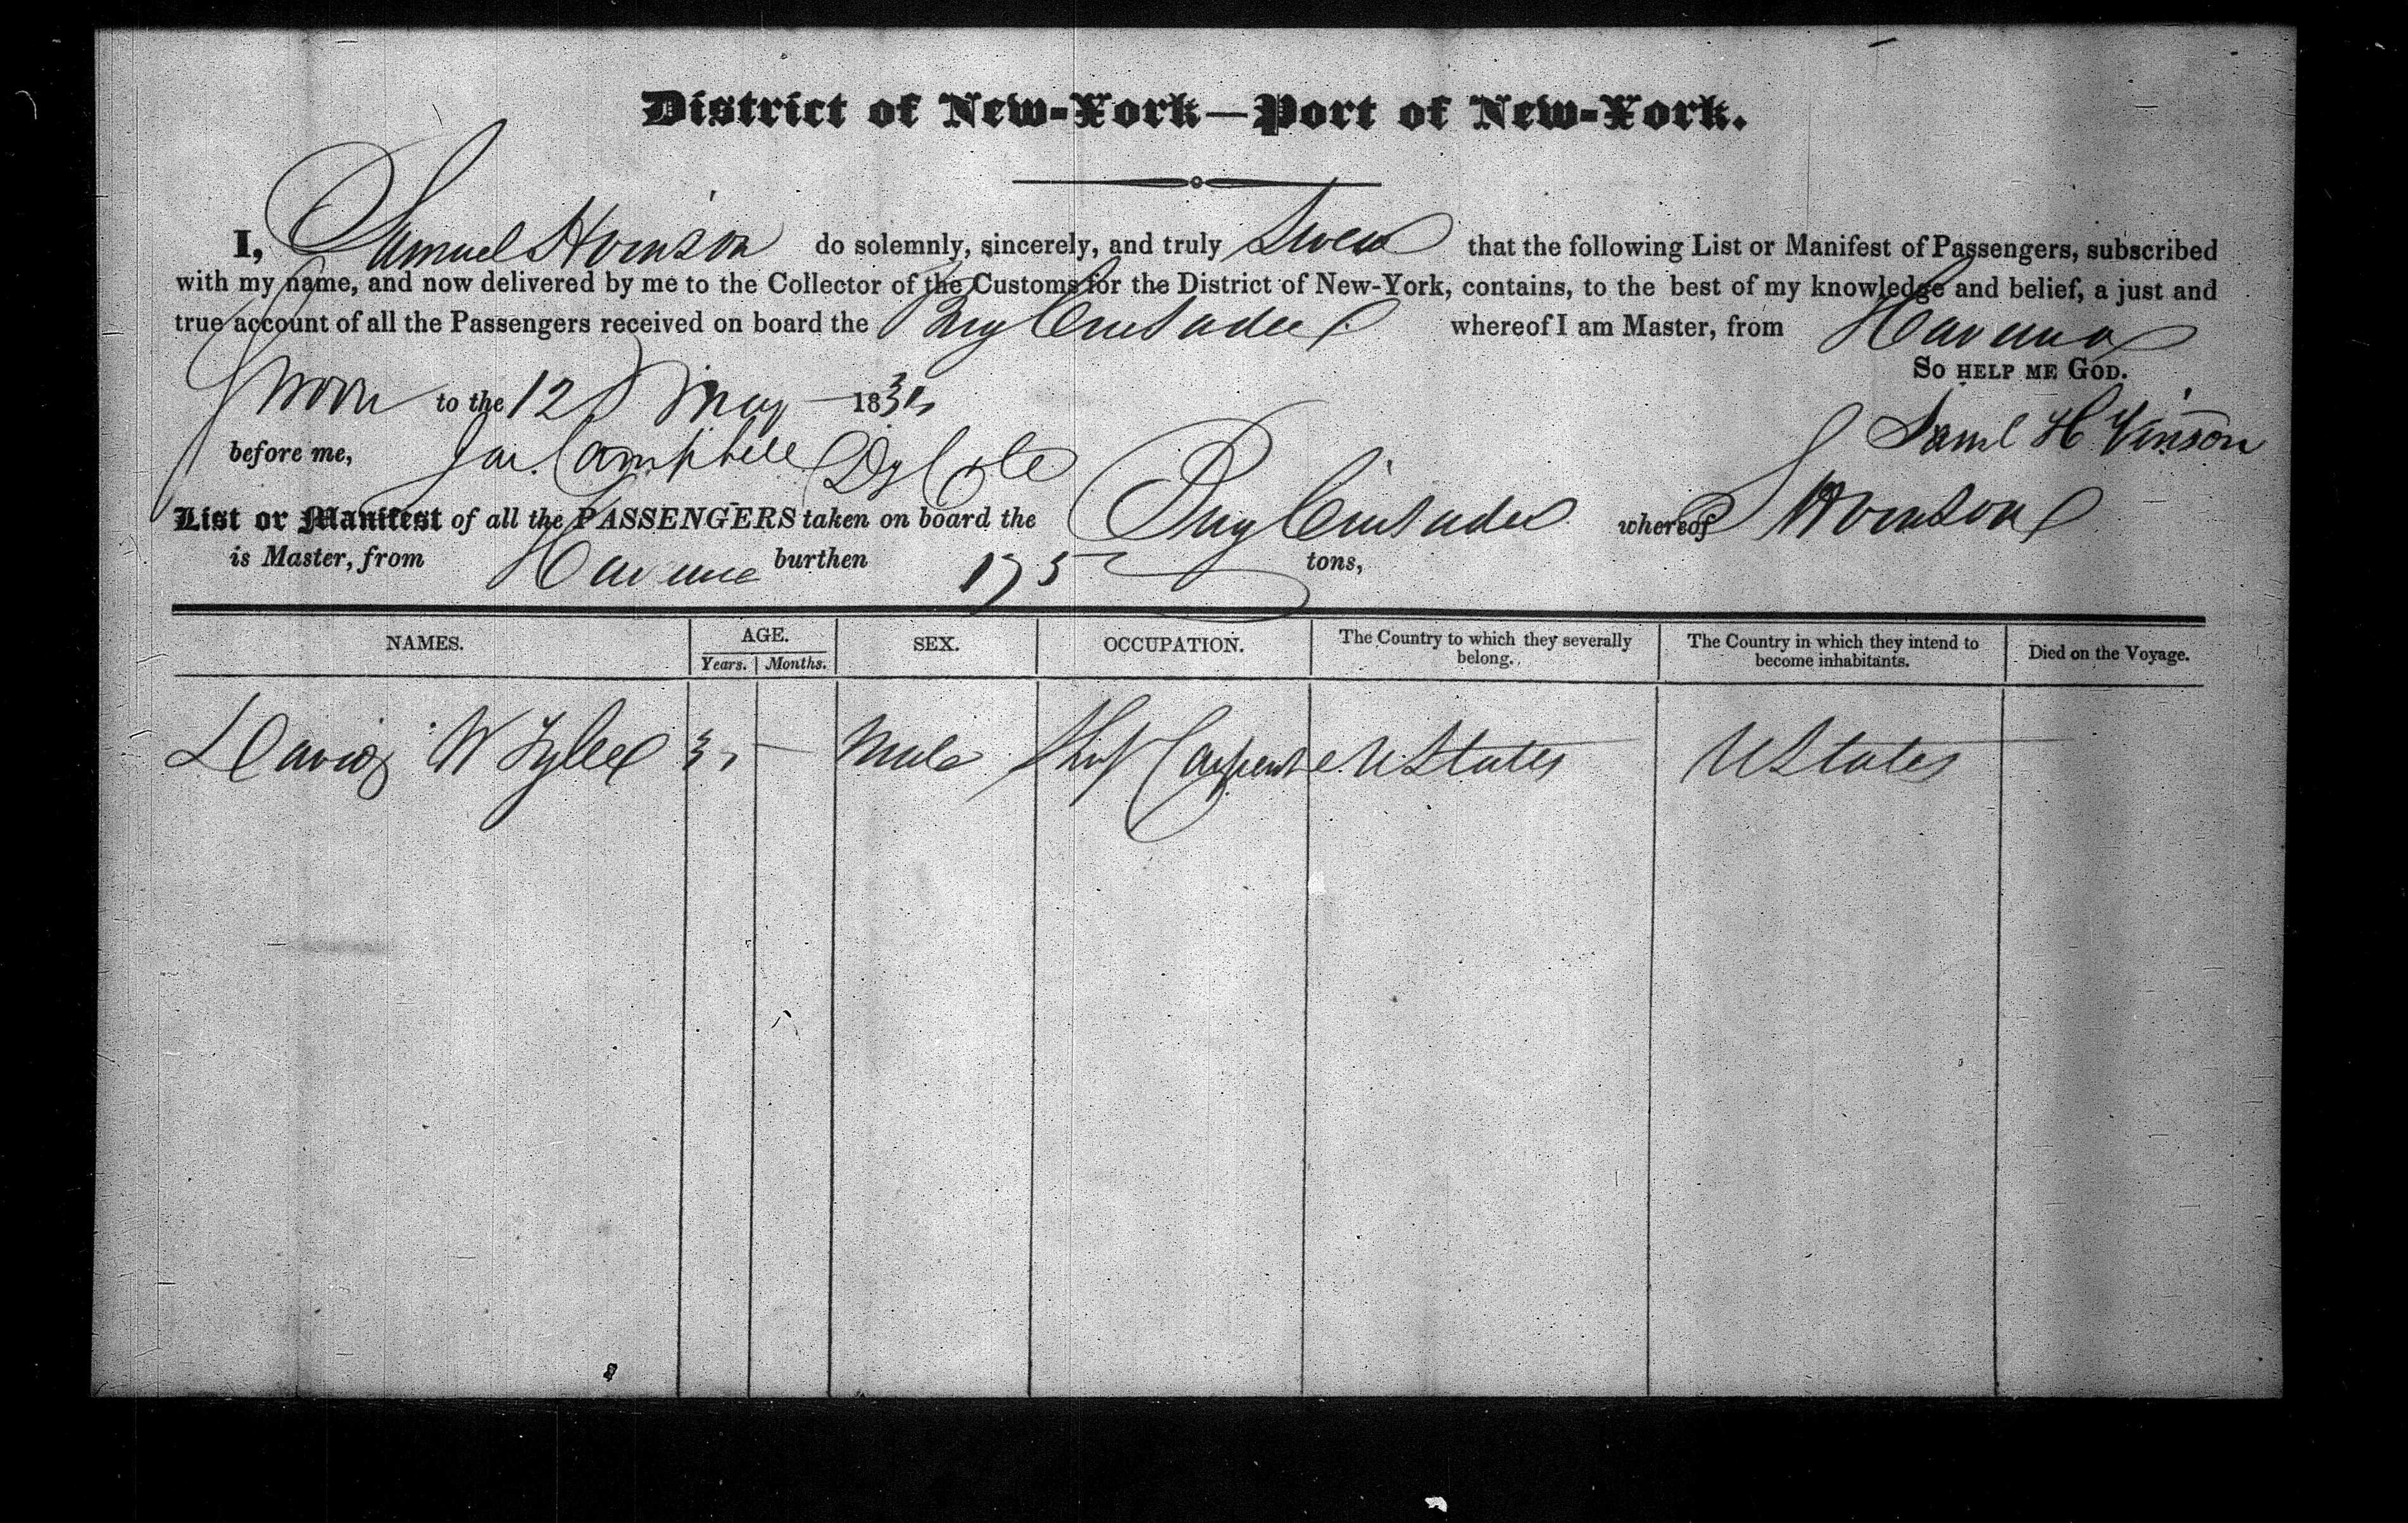 District of New-York—Port of New-York.
I, Samuel H Vinson do solemnly, sincerely, and truly Swear that the following List or Manifest of Passengers, subscribed
with my name, and now delivered by me to the Collector of the Customs for the District of New-York, contains, to the best of my knowledge and belief, a just and
true account of all the Passengers received on board the Brig Crusader whereof I am Master, from Havana
So HELP ME GOD.
Sworn to the 12 May 183
Saml H. Vinson
before me, Jas. Campbell Dy Colr
List or Manifest of all the PASSENGERS taken on board the Brig Crusader whereof S H Vinson
is Master, from Havana burthen 175 tons,
NAMES. AGE. SEX. OCCUPATION. The Country to which they severally belong. The Country in which they intend to become inhabitants. Died on the Voyage.
Years. Months.
David W Tyler 35 Male Ship Carpenter U States U States